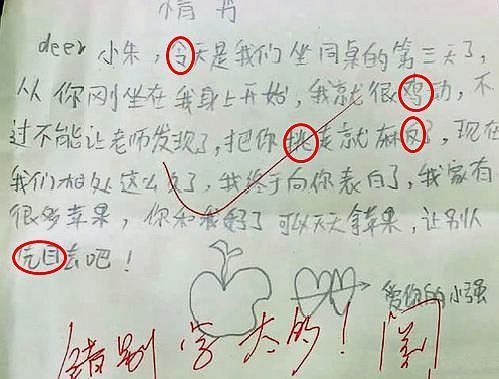 情书
deer 小朱，令天是我们坐同桌的第三天了，
从你刚坐在我身上开始，我就很鸡动，不
过不能让老师发现了，把你挑走就麻凤了，现在
我们相处这么久了，我终于向你表白了，我家有
很多苹果，你和我好了可以天天拿苹果，让别人
元目去吧！
爱你的小强
错别字太多！阅